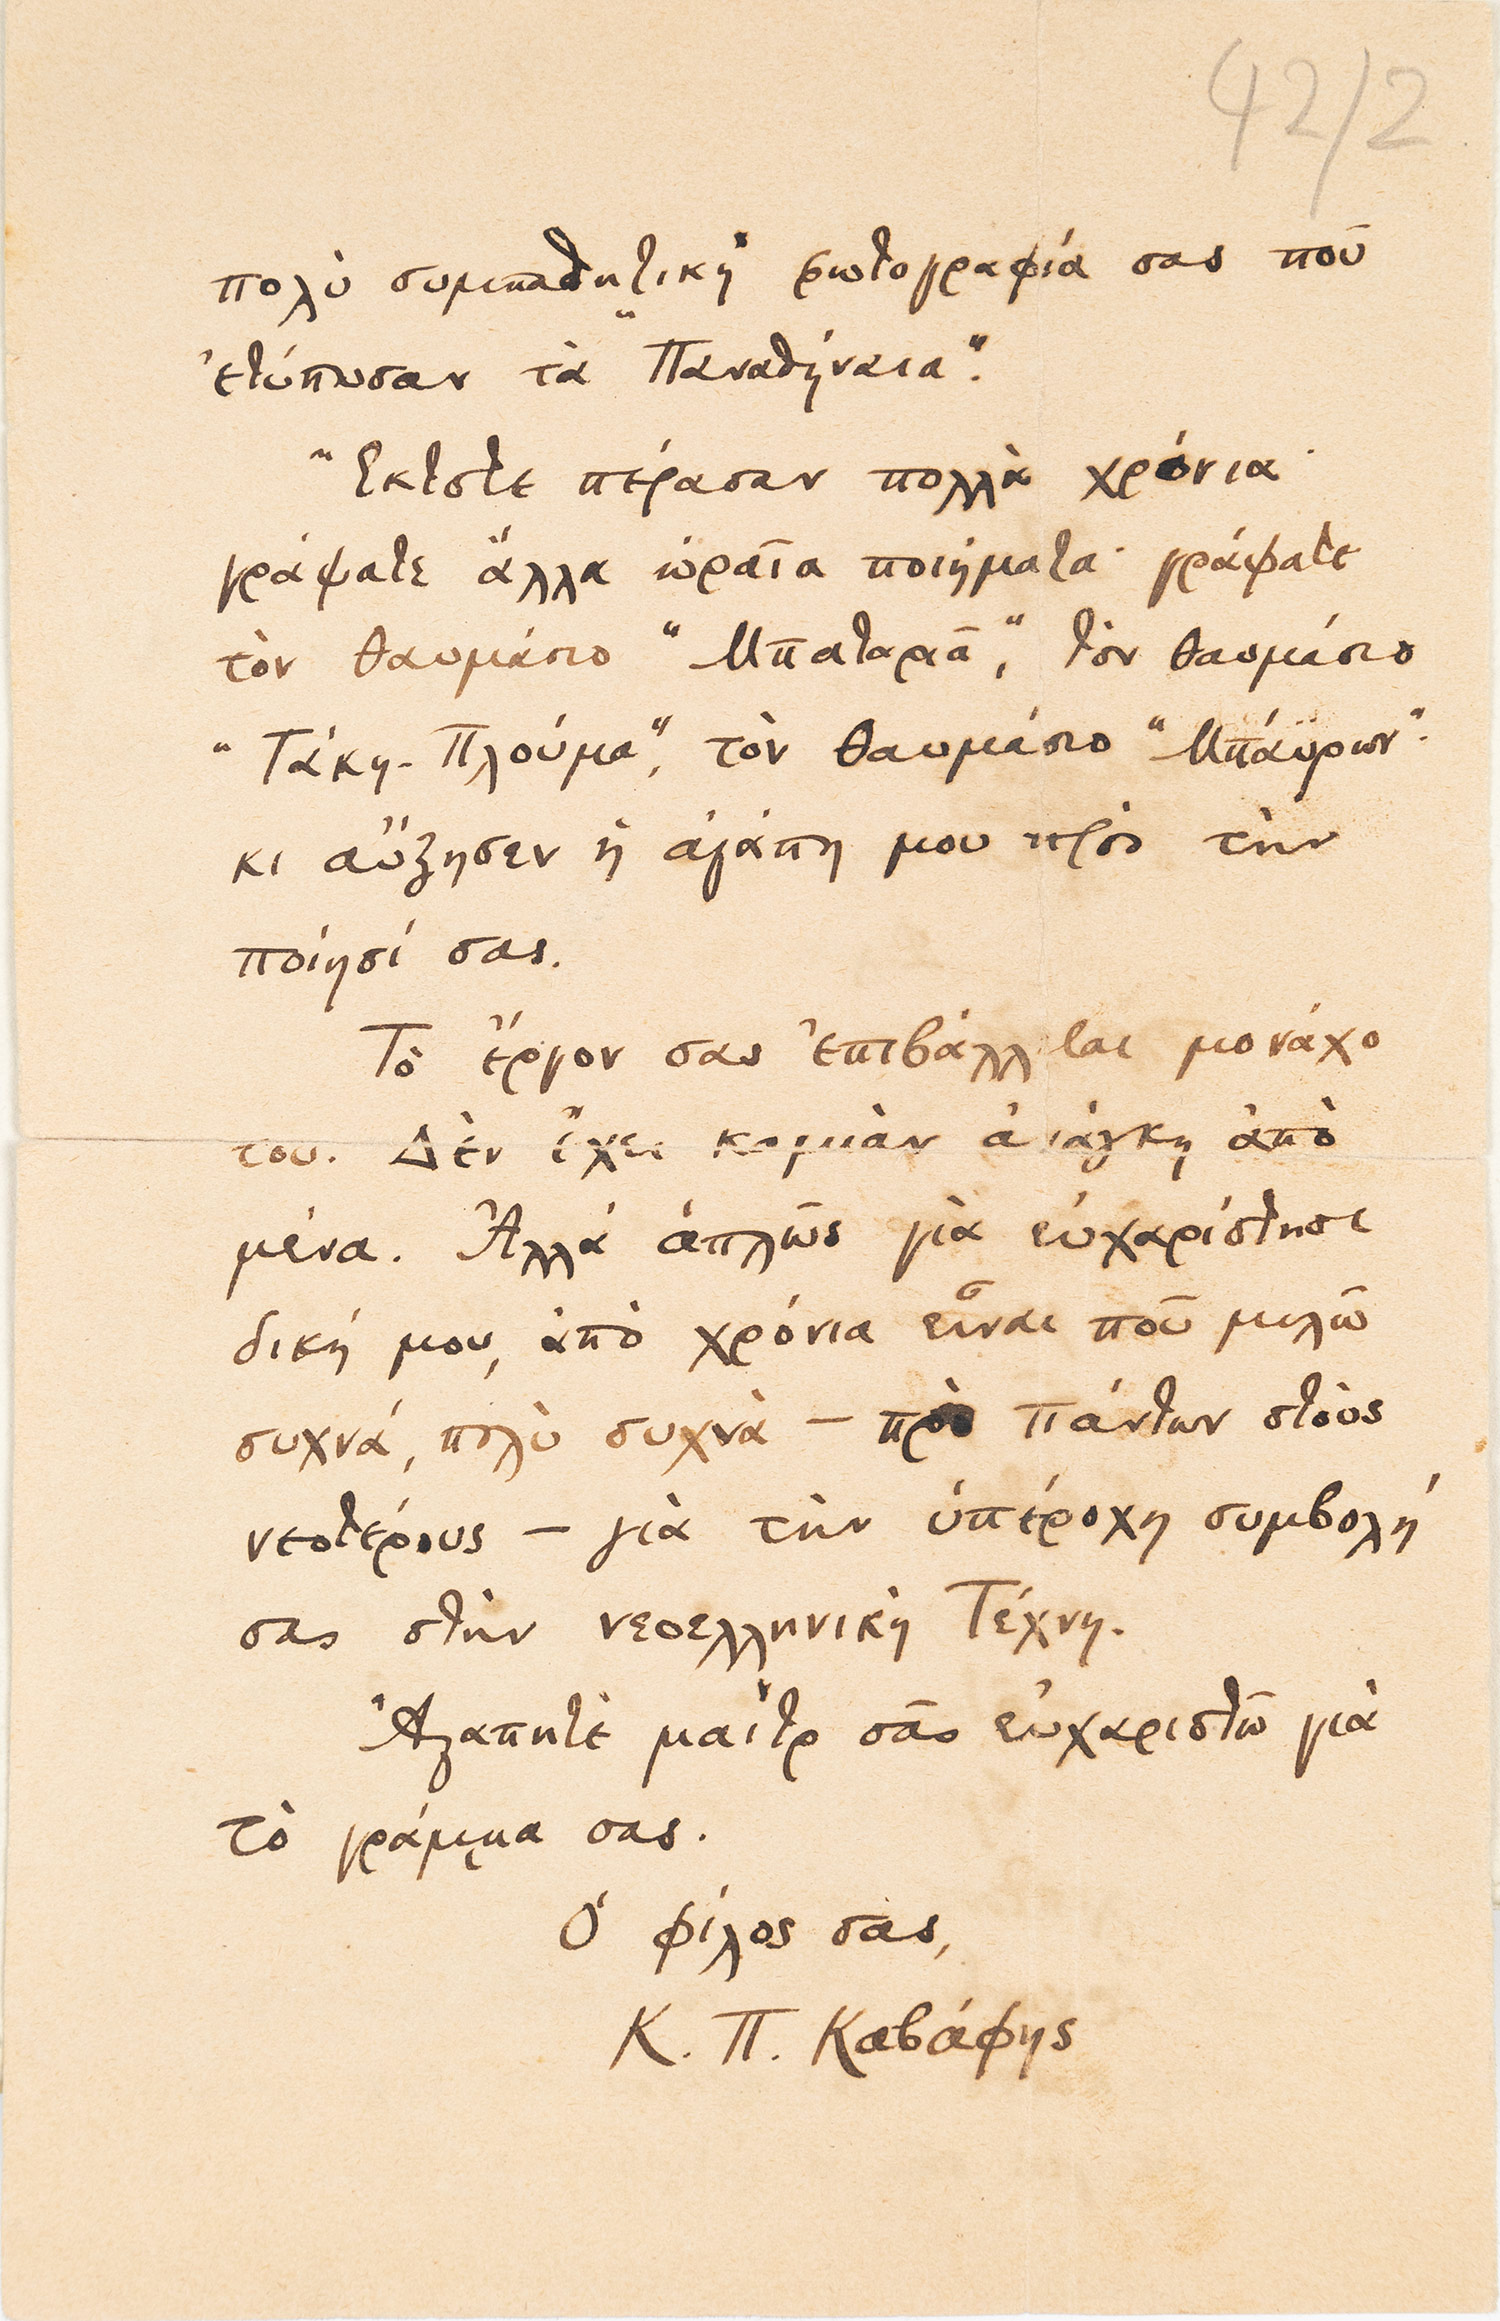 42/2
πολὺ συμπαθητικὴ φωτογραφία σας ποῦ
ἐτύπωσαν τὰ "Παναθήναια".
Ἔκτοτε πέρασαν πολλὰ χρόνια·
γράψατε ἄλλα ὡραῖα ποιήματα· γράψατε
τὸν θαυμάσιο "Μπαταριᾶ", τὸν θαυμάσιο
"Τάκη-Πλούμα", τὸν θαυμάσιο "Μπάϋρον".
κι αὔξησεν ἡ ἀγάπη μου πρὸς τὴν
ποίησί σας.
Τὸ ἔργον σας ἐπιβάλλεται μονάχο
του. Δὲν ἔχει καμιὰν ἀνάγκη ἀπὸ
μένα. Ἀλλὰ ἁπλῶς γιὰ εὐχαρίστησι
δική μου, ἀπὸ χρόνια εἶναι ποῦ μιλῶ
συχνά, πολὺ συχνὰ — πρὸ πάντων στοὺς
νεοτέρους — γιὰ τὴν ὑπέροχη συμβολή
σας στὴν νεοελληνικὴ Τέχνη.
Ἀγαπητὲ μαὶτρ σᾶς εὐχαριστῶ γιὰ
τὸ γράμμα σας.
Ὁ φίλος σας,
Κ. Π. Καβάφης